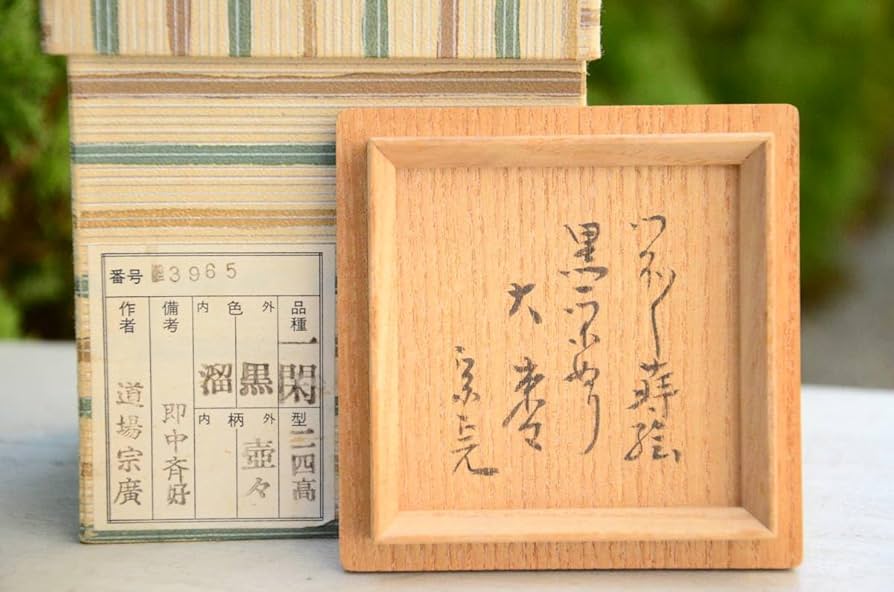 番号 3965
品種 一閑
型 二四高
外 色 内
黒
溜
外 柄 内
壺々
備考 即中斉好
作者 道場宗廣
蒔絵
黒 ぬり
大棗